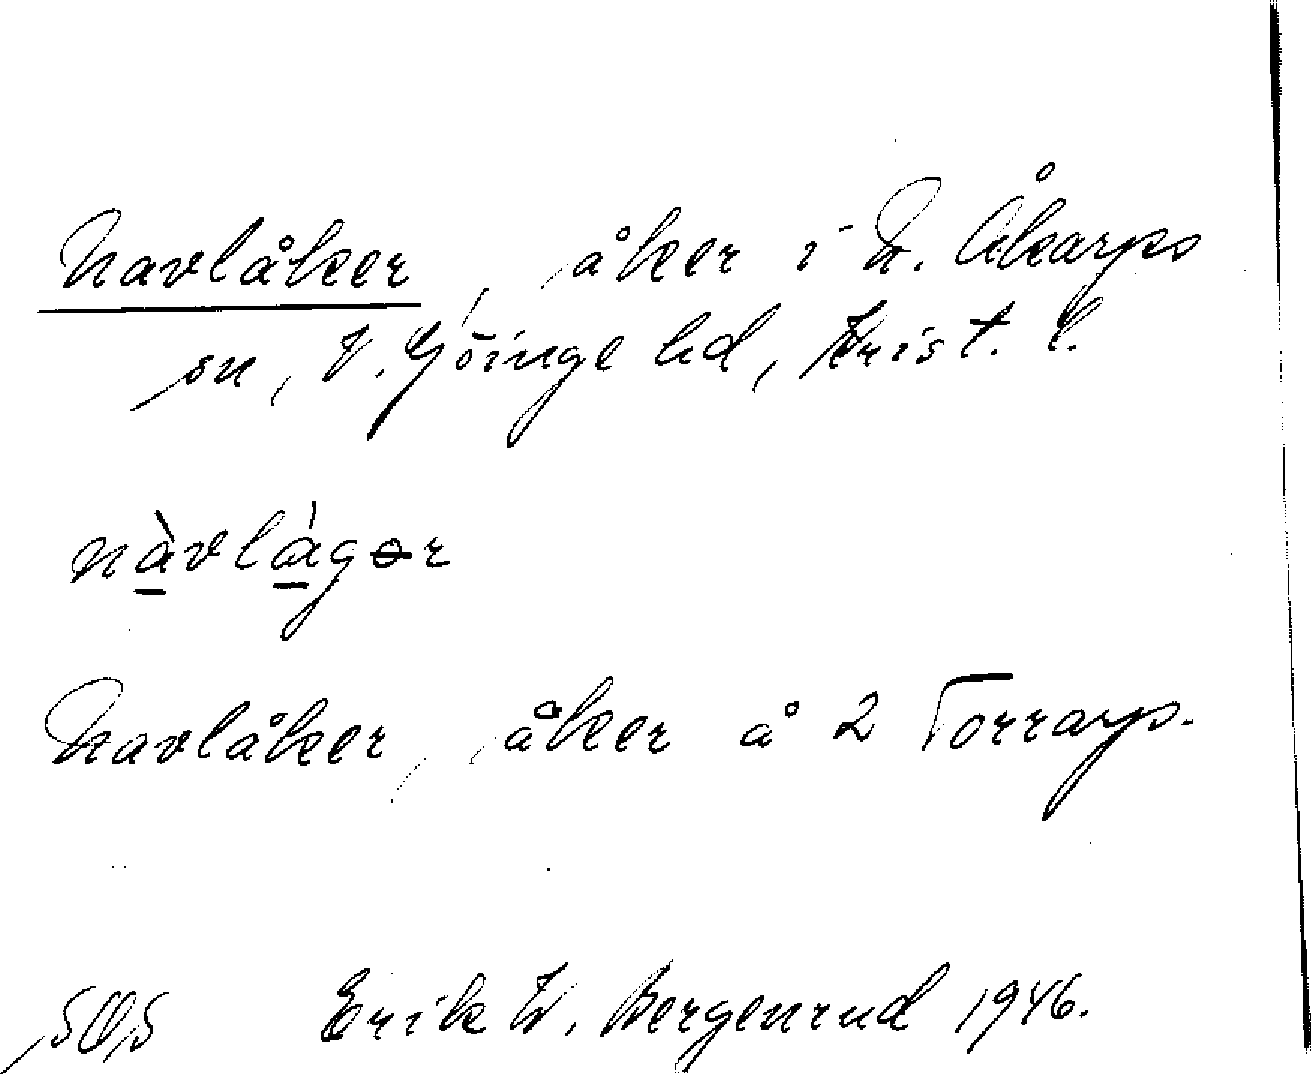 Navlåker, åker i N. Åkarps
sn, V. Göinge hd, Krist. l.
nàvlágər
Navlåker, åker å 2 Torrarp.
505 Erik W. Bergenrud 1946.